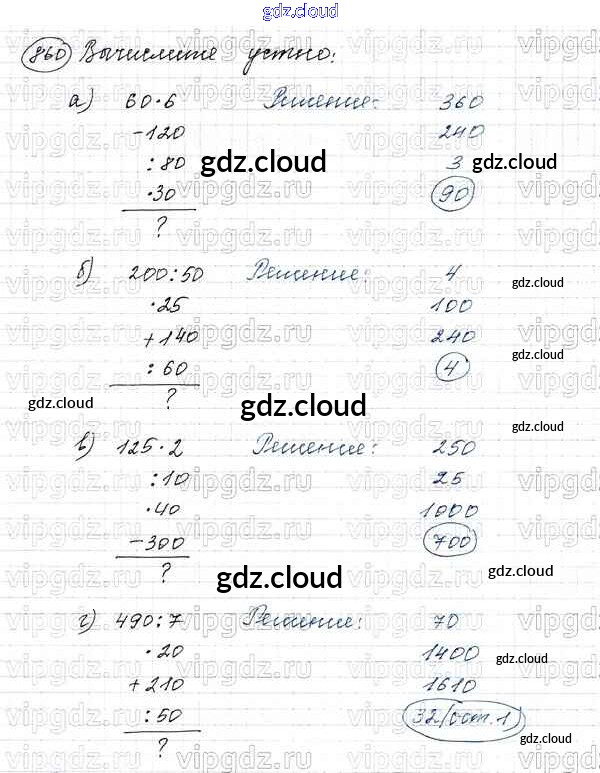 gdz.cloud
860 Вычислите устно:
а) 60·6 Решение: 360
-120 240
:80 gdz.cloud 3 gdz.cloud
·30 90
?
б) 200:50 Решение: 4 gdz.cloud
·25 100
+140 240 gdz.cloud
:60 4
gdz.cloud ? gdz.cloud
gdz.cloud
в) 125·2 Решение: 250
:10 25
·40 1000
-300 700
? gdz.cloud gdz.cloud
г) 490:7 Решение: 70
·20 1400 gdz.cloud
+210 1610
:50 32(ост.1) gdz.cloud
?
vipgdz.ru